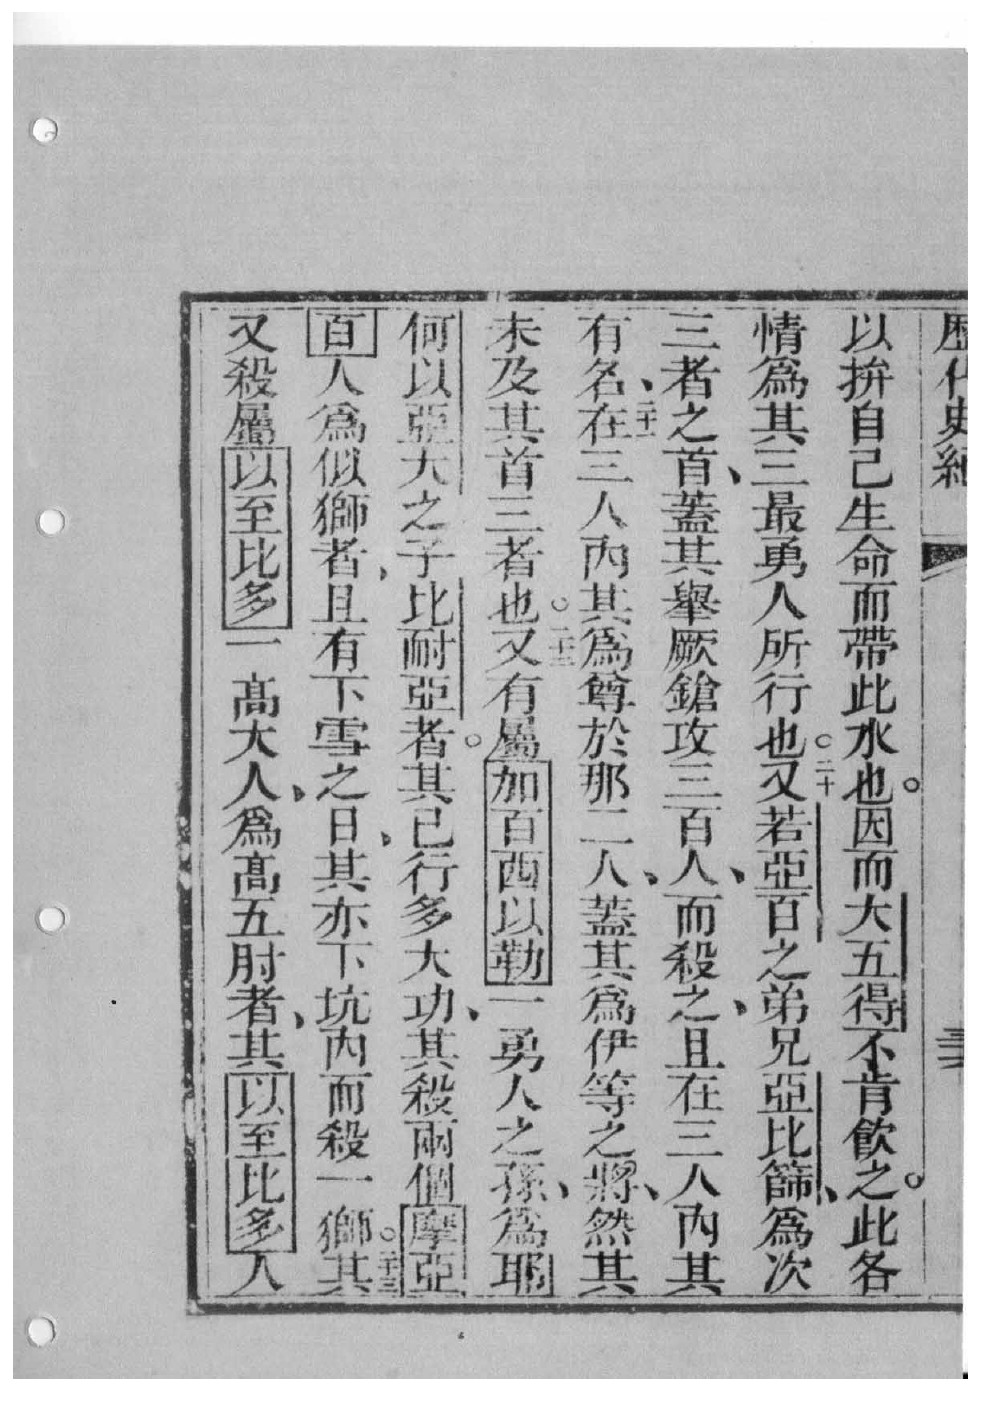 歷代史紀
以拚自己生命而帶此水也。因而大五得不肯飲之。此各
情爲其三最勇人所行也。二十又若亞百之弟兄亞比篩、爲次
三者之首、蓋其舉厥鎗攻三百人、而殺之、且在三人內其
有名、二十一在三人內其爲尊於那二人、蓋其爲伊等之將、然其
未及其首三者也。二十二又有屬加百西以勒一勇人之孫、爲耶
何以亞大之子比耐亞者。其已行多大功、其殺兩個摩亞
百人爲似獅者、且有下雪之日、其亦下坑內而殺一獅。二十三其
又殺屬以至比多一高大人、爲高五肘者、其以至比多人